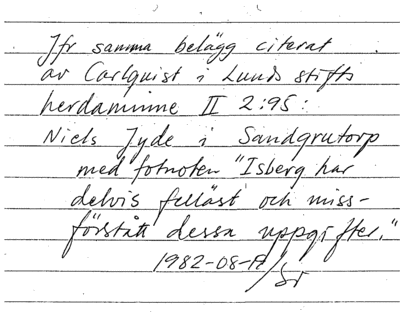 Jfr samma belägg citerat
av Carlquist i Lunds stifts
herdaminne II 2:95:
Niels Jyde i Sandgrutorp
med fotnoten "Isberg har
delvis felläst och miss-
förstått dessa uppgifter."
1982-08-17/Sr